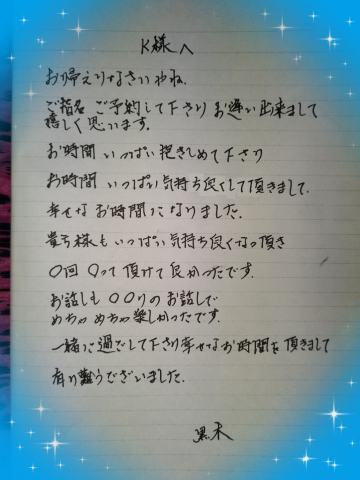 K様へ
お帰えりなさいませね.
ご指名 ご予約して下さり お逢い出来まして
嬉しく思います.
お時間 いっぱい抱きしめて下さり
お時間 いっぱい気持ち良くして頂きまして.
幸せなお時間になりました.
貴方様も いっぱい気持ち良くなって頂き
〇回 〇って頂けて良かったです.
お話しも 〇〇りのお話しで
めちゃめちゃ楽しかったです.
一緒に過ごして下さり幸せなお時間を頂きまして
有り難うございました.
黒木